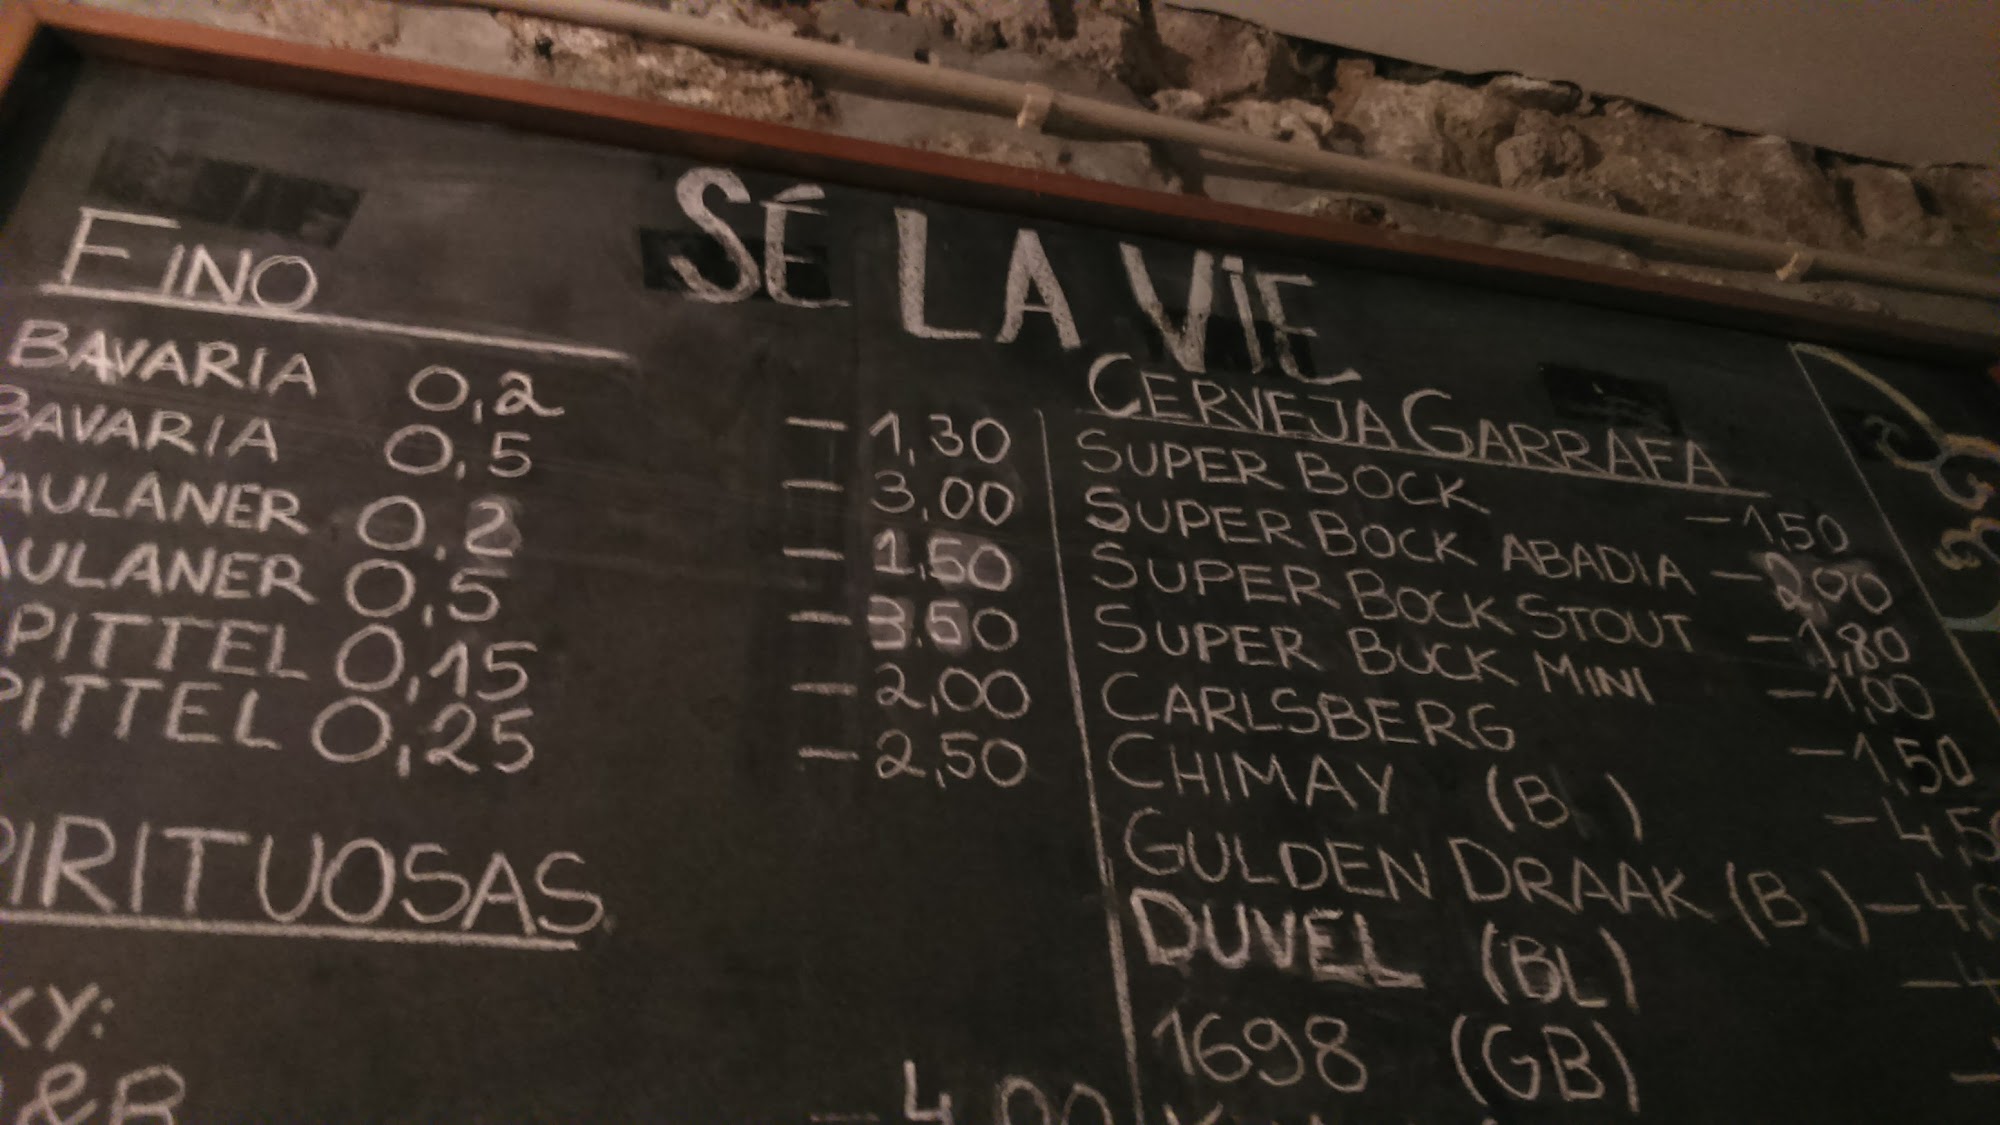 SÉ LA ViE
FINO
BAVARIA 0,2 – 1,30
BAVARIA 0,5 – 3,00
AULANER 0,2 – 1,50
AULANER 0,5 – 3,50
PITTEL 0,15 – 2,00
PITTEL 0,25 – 2,50
PIRITUOSAS
KY:
&B – 4,00
CERVEJA GARRAFA
SUPER BOCK – 1,50
SUPER BOCK ABADIA – 2,00
SUPER BOCK STOUT – 1,80
SUPER BOCK MINI – 1,00
CARLSBERG – 1,50
CHIMAY (B ) – 4,50
GULDEN DRAAK (B ) – 4,
DUVEL (BL) – 4
1698 (GB) –